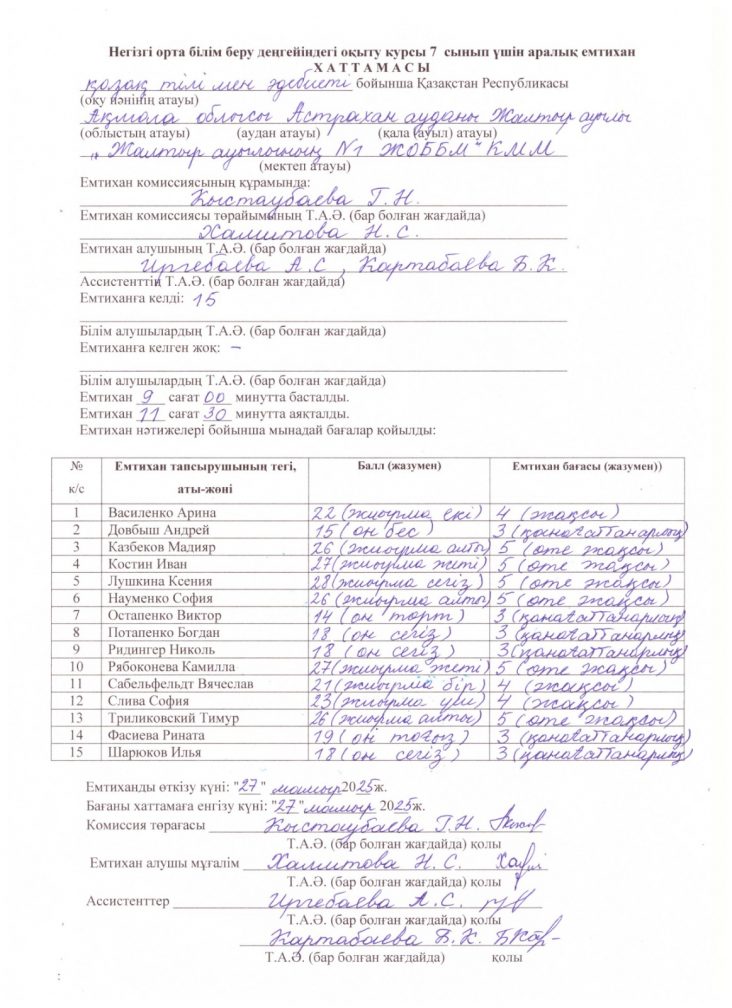 Негізгі орта білім беру деңгейіндегі оқыту курсы 7 сынып үшін аралық емтихан
ХАТТАМАСЫ
қазақ тілі мен әдебиеті бойынша Қазақстан Республикасы
(оқу пәнінің атауы)
Ақмола облысы Астрахан ауданы Жалтыр ауылы
(облыстың атауы) (аудан атауы) (қала (ауыл) атауы)
„Жалтыр ауылының №1 ЖОББМ" КММ
(мектеп атауы)
Емтихан комиссиясының құрамында:
Кыстаубаева Г.Н.
Емтихан комиссиясы төрайымының Т.А.Ә. (бар болған жағдайда)
Халитова Н.С.
Емтихан алушының Т.А.Ә. (бар болған жағдайда)
Иргебаева А.С, Картабаева Б.К.
Ассистенттің Т.А.Ә. (бар болған жағдайда)
Емтиханға келді: 15
Білім алушылардың Т.А.Ә. (бар болған жағдайда)
Емтиханға келген жоқ: –
Білім алушылардың Т.А.Ә. (бар болған жағдайда)
Емтихан 9 сағат 00 минутта басталды.
Емтихан 11 сағат 30 минутта аяқталды.
Емтихан нәтижелері бойынша мынадай бағалар қойылды:
№ к/с Емтихан тапсырушының тегі, аты-жөні Балл (жазумен) Емтихан бағасы (жазумен))
1 Василенко Арина 22 (жиырма екі) 4 (жақсы)
2 Довбыш Андрей 15 (он бес) 3 (қанағаттанарлық)
3 Казбеков Мадияр 26 (жиырма алты) 5 (өте жақсы)
4 Костин Иван 27 (жиырма жеті) 5 (өте жақсы)
5 Лушкина Ксения 28 (жиырма сегіз) 5 (өте жақсы)
6 Науменко София 26 (жиырма алты) 5 (өте жақсы)
7 Остапенко Виктор 14 (он төрт) 3 (қанағаттанарлық)
8 Потапенко Богдан 18 (он сегіз) 3 (қанағаттанарлық)
9 Ридингер Николь 18 (он сегіз) 3 (қанағаттанарлық)
10 Рябоконева Камилла 27 (жиырма жеті) 5 (өте жақсы)
11 Сабельфельдт Вячеслав 21 (жиырма бір) 4 (жақсы)
12 Слива София 23 (жиырма үш) 4 (жақсы)
13 Триликовский Тимур 26 (жиырма алты) 5 (өте жақсы)
14 Фасиева Рината 19 (он тоғыз) 3 (қанағаттанарлық)
15 Шарюков Илья 18 (он сегіз) 3 (қанағаттанарлық)
Емтиханды өткізу күні: "27" мамыр 2025ж.
Бағаны хаттамаға енгізу күні: "27" мамыр 2025ж.
Комиссия төрағасы Кыстаубаева Г.Н.
Т.А.Ә. (бар болған жағдайда) қолы
Емтихан алушы мұғалім Халитова Н.С.
Т.А.Ә. (бар болған жағдайда) қолы
Ассистенттер Иргебаева А.С.
Т.А.Ә. (бар болған жағдайда) қолы
Картабаева Б.К.
Т.А.Ә. (бар болған жағдайда) қолы